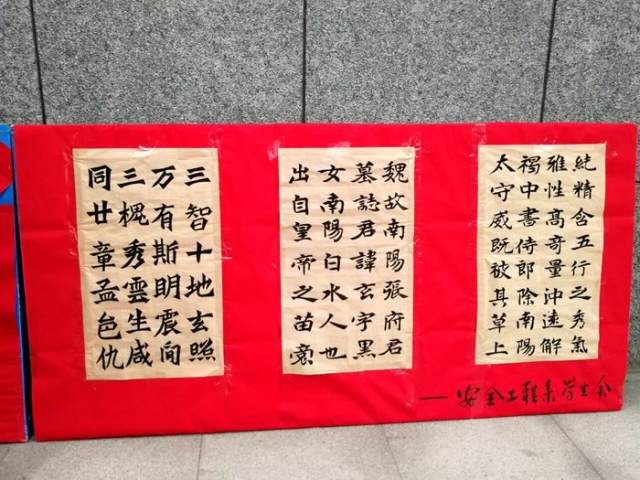 三智十地玄照
万有斯明震
三槐秀雲生咸
同廿章孟邑仇
魏故南陽張府君
墓誌君諱玄字黑
女南陽白水人也
出自皇帝之苗裔
純精含五行之秀氣
雅性高奇量沖遠解
褐中書侍郎除南陽
太守威既被其草上
——安全工程系学生会